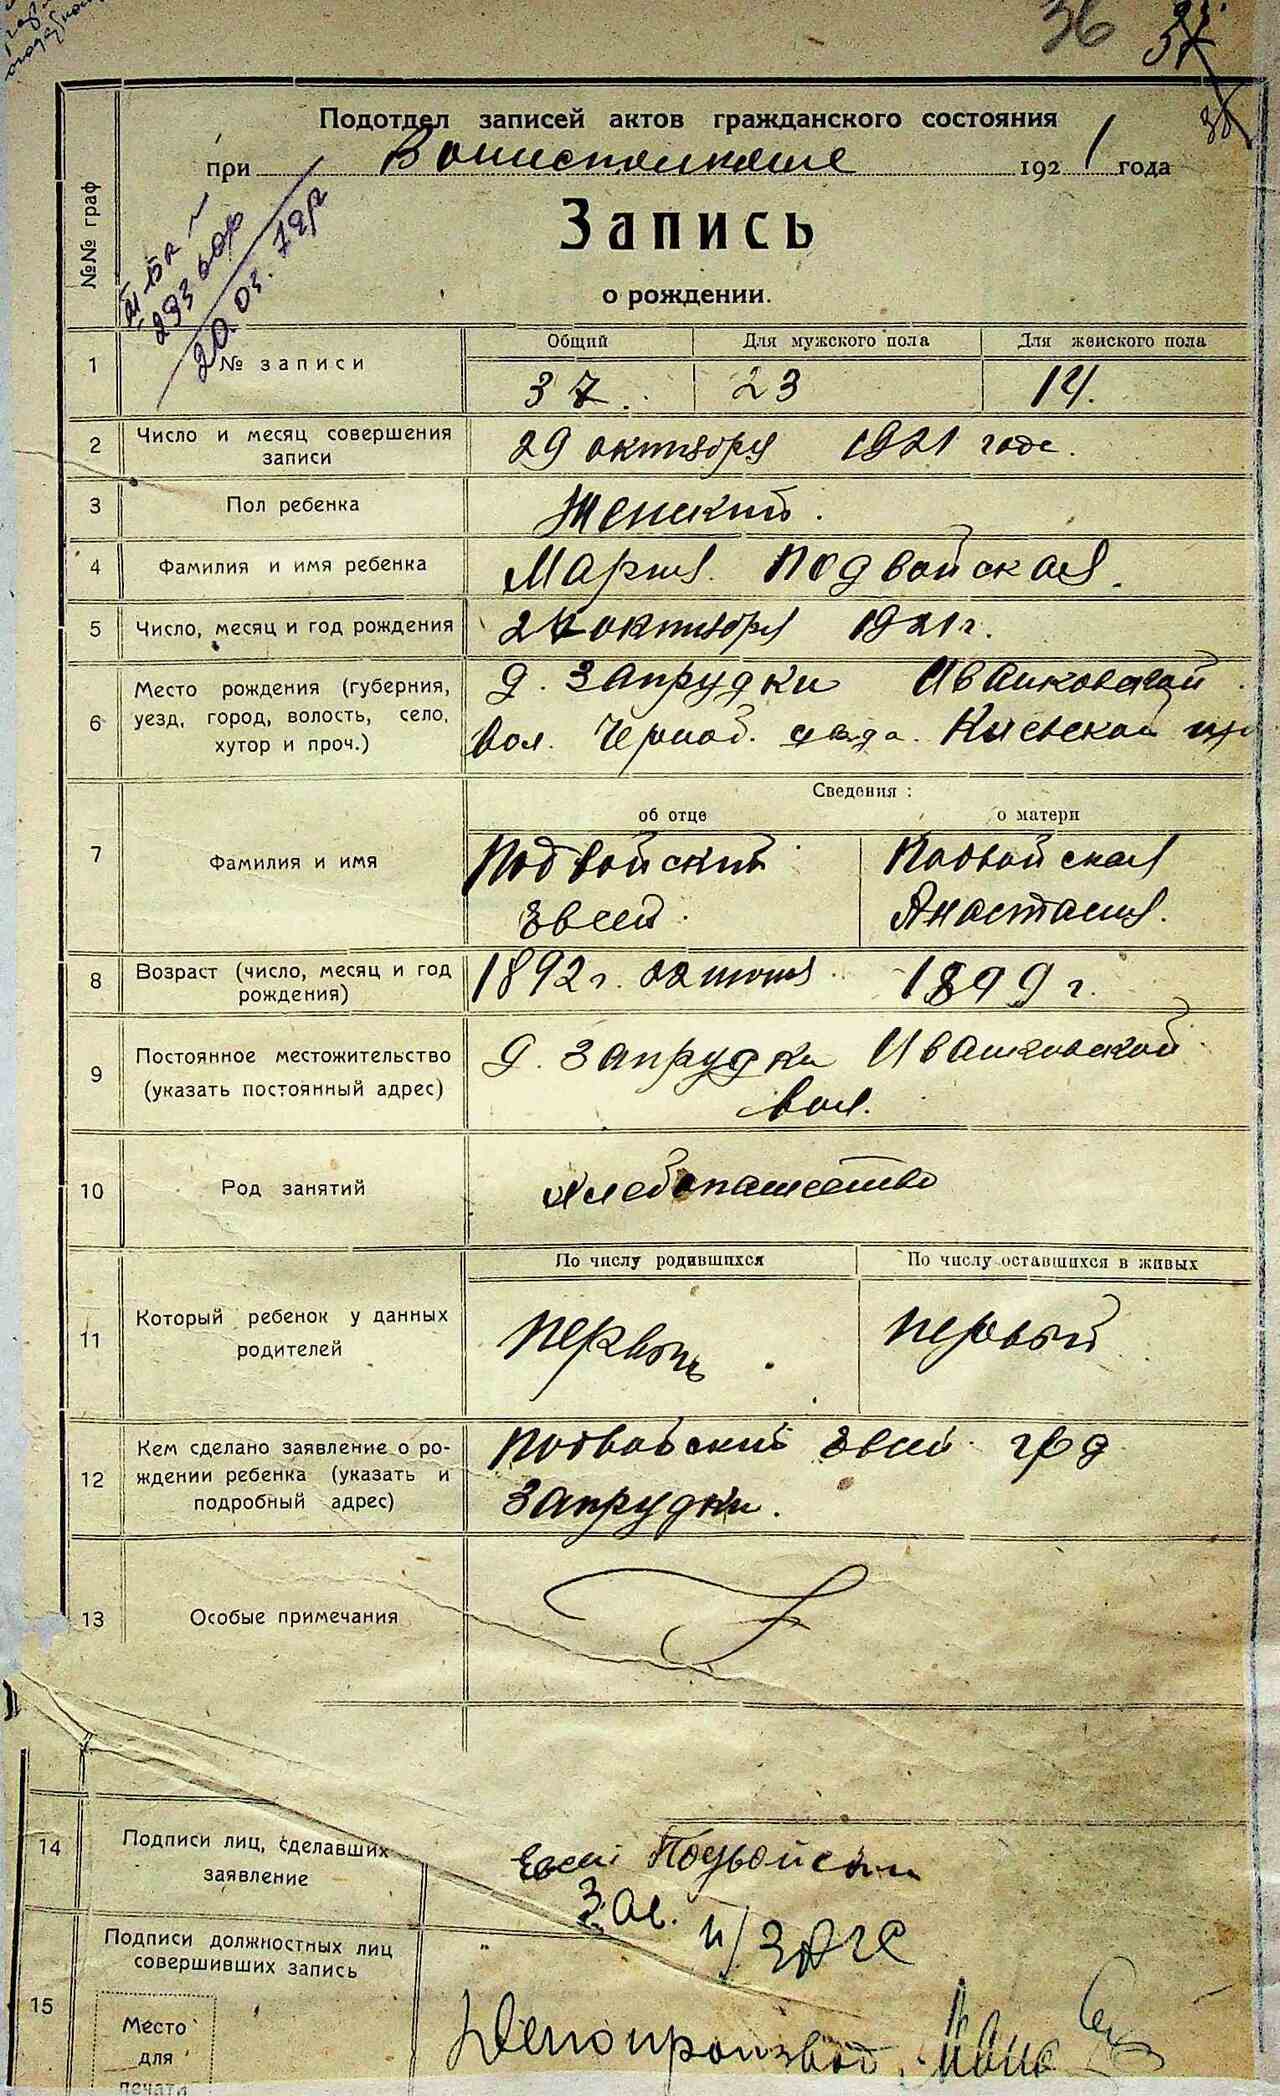 36
Подотдел записей актов гражданского состояния
при Волисполкоме 1921 года
Запись
о рождении.
20.03.72р
№№ граф
1 № записи
Общий Для мужского пола Для женского пола
37. 23 14.
2 Число и месяц совершения
записи
29 октября 1921 года.
3 Пол ребенка Женский.
4 Фамилия и имя ребенка Мария Подвойская.
5 Число, месяц и год рождения октября 1921 г.
6 Место рождения (губерния,
уезд, город, волость, село,
хутор и проч.)
д. Запрудки Иванковской
вол. Черноб. уезда. Киевской
Сведения:
об отце о матери
7 Фамилия и имя
Подвойский Подвойская
Эвсей. Анастасия.
8 Возраст (число, месяц и год
рождения)
1892 г. 22 июня 1899 г.
9 Постоянное местожительство
(указать постоянный адрес)
д. Запрудки Иванковской
вол.
10 Род занятий хлебопашество
11 Который ребенок у данных
родителей
По числу родившихся По числу оставшихся в живых
первый первый
12 Кем сделано заявление о ро-
ждении ребенка (указать и
подробный адрес)
Подвойский Эвсей гр д
Запрудки.
13 Особые примечания
14 Подписи лиц, сделавших
заявление
Евсей Подвойский
Зав. п/ЗАГС
15 Подписи должностных лиц
совершивших запись
Место
для
печати
Делопроизвод.